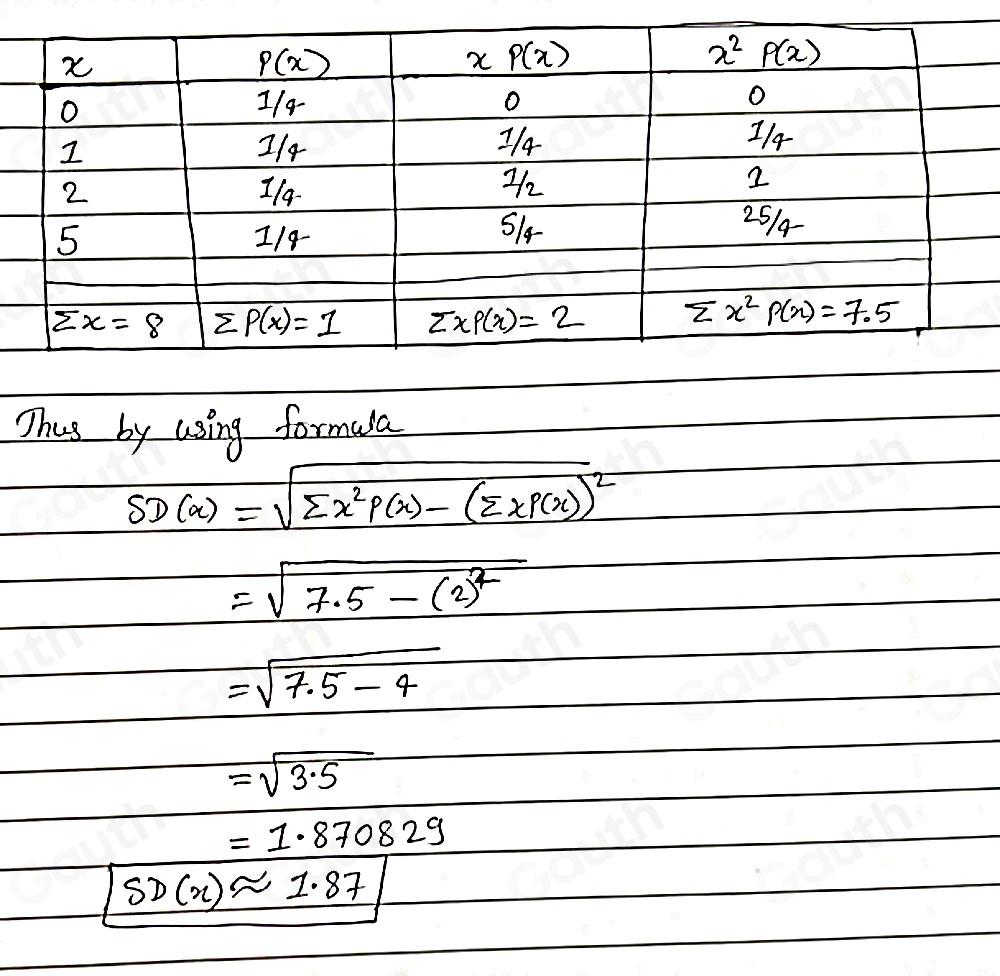 x P(x) x P(x) x² P(x)
0 1/4 0 0
1 1/4 1/4 1/4
2 1/4 1/2 1
5 1/4 5/4 25/4
Σx = 8 ΣP(x) = 1 ΣxP(x) = 2 Σx² P(x) = 7.5
Thus by using formula
SD(x) = √(Σx²P(x) – (ΣxP(x))²)
= √(7.5 – (2)²)
= √(7.5 – 4)
= √3.5
= 1.870829
SD(x) ≈ 1.87
Gauth